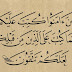 ءَامَنُوا كُتِبَ عَلَيْكُمُ
كَمَا كُتِبَ عَلَى الَّذِينَ مِن قَبْلِكُمْ
لَعَلَّكُمْ تَتَّقُونَ